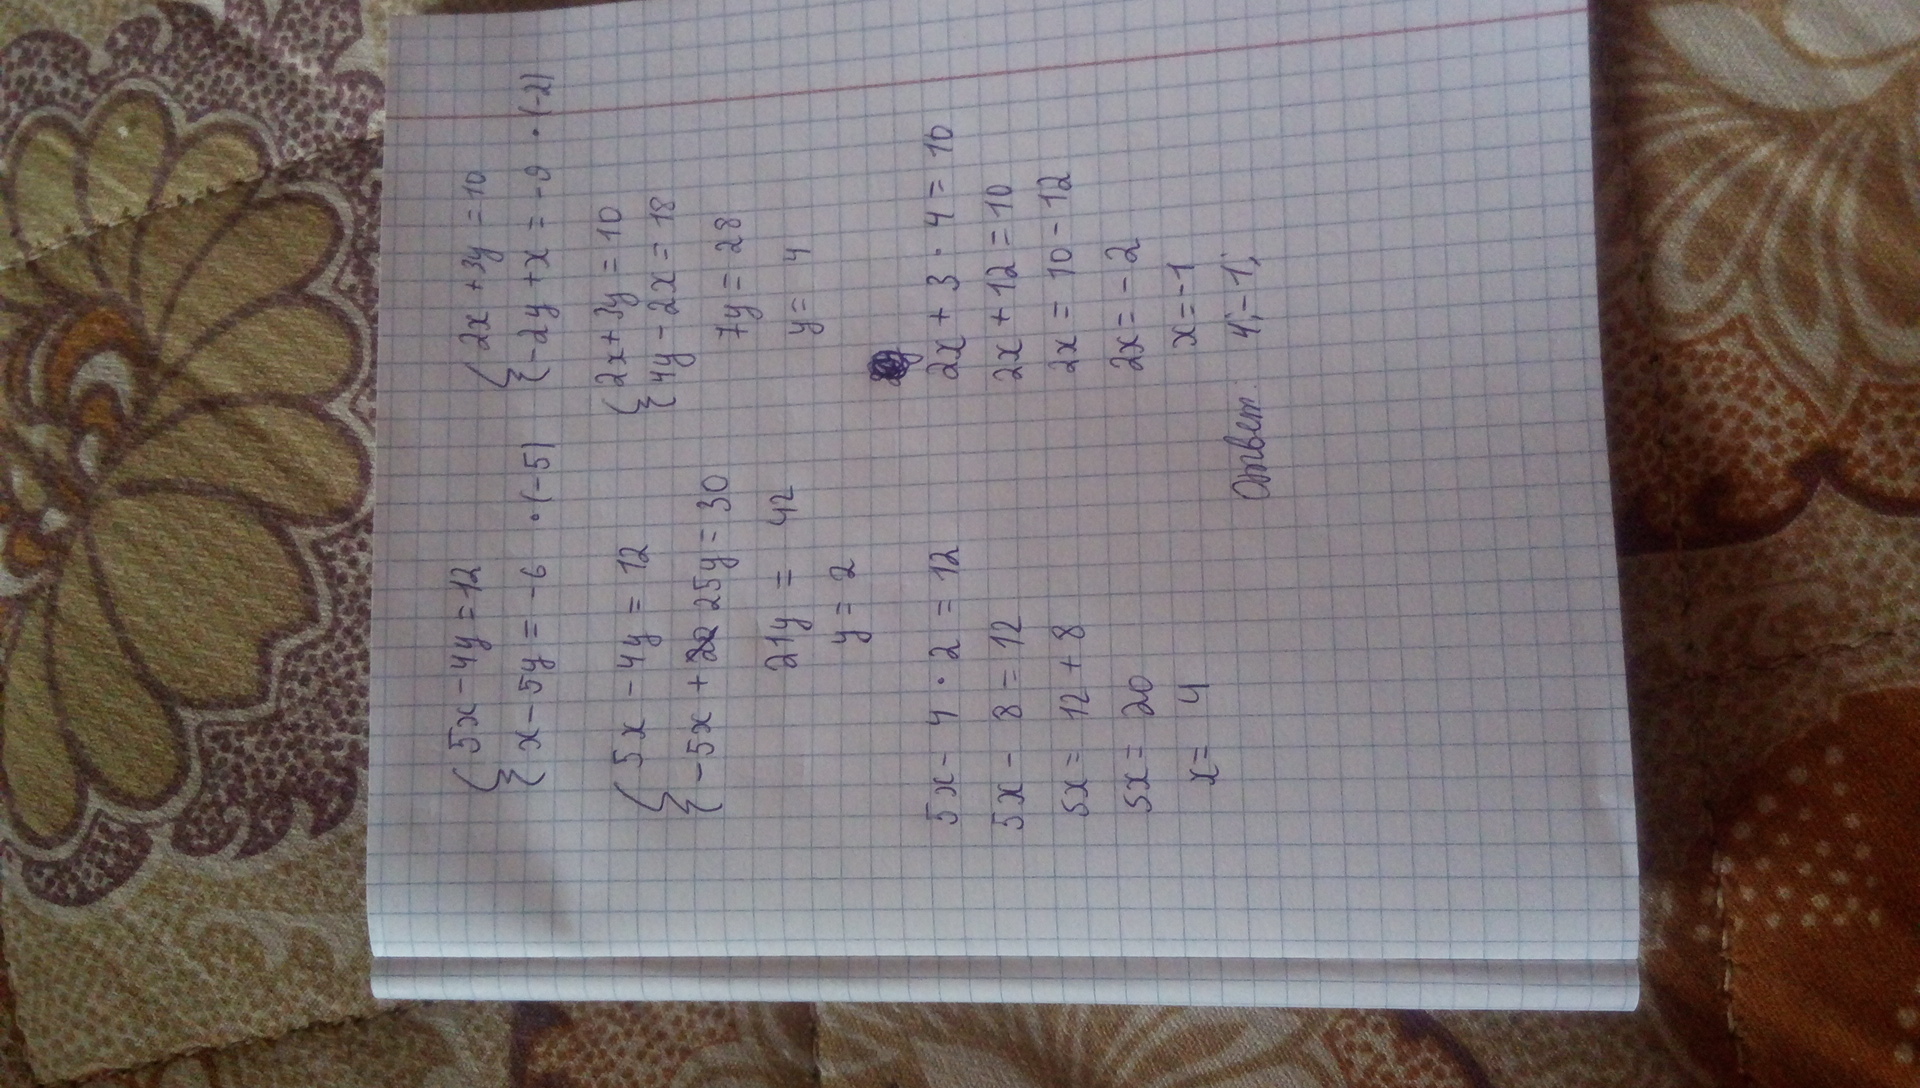 5x - 4y = 12
x - 5y = -6 · (-5)
5x - 4y = 12
-5x + 25y = 30
21y = 42
y = 2
5x - 4 · 2 = 12
5x - 8 = 12
5x = 12 + 8
5x = 20
x = 4
2x + 3y = 10
-2y + x = -9 · (-2)
2x + 3y = 10
4y - 2x = 18
7y = 28
y = 4
2x + 3 · 4 = 10
2x + 12 = 10
2x = 10 - 12
2x = -2
x = -1
Ответ: 4; -1;